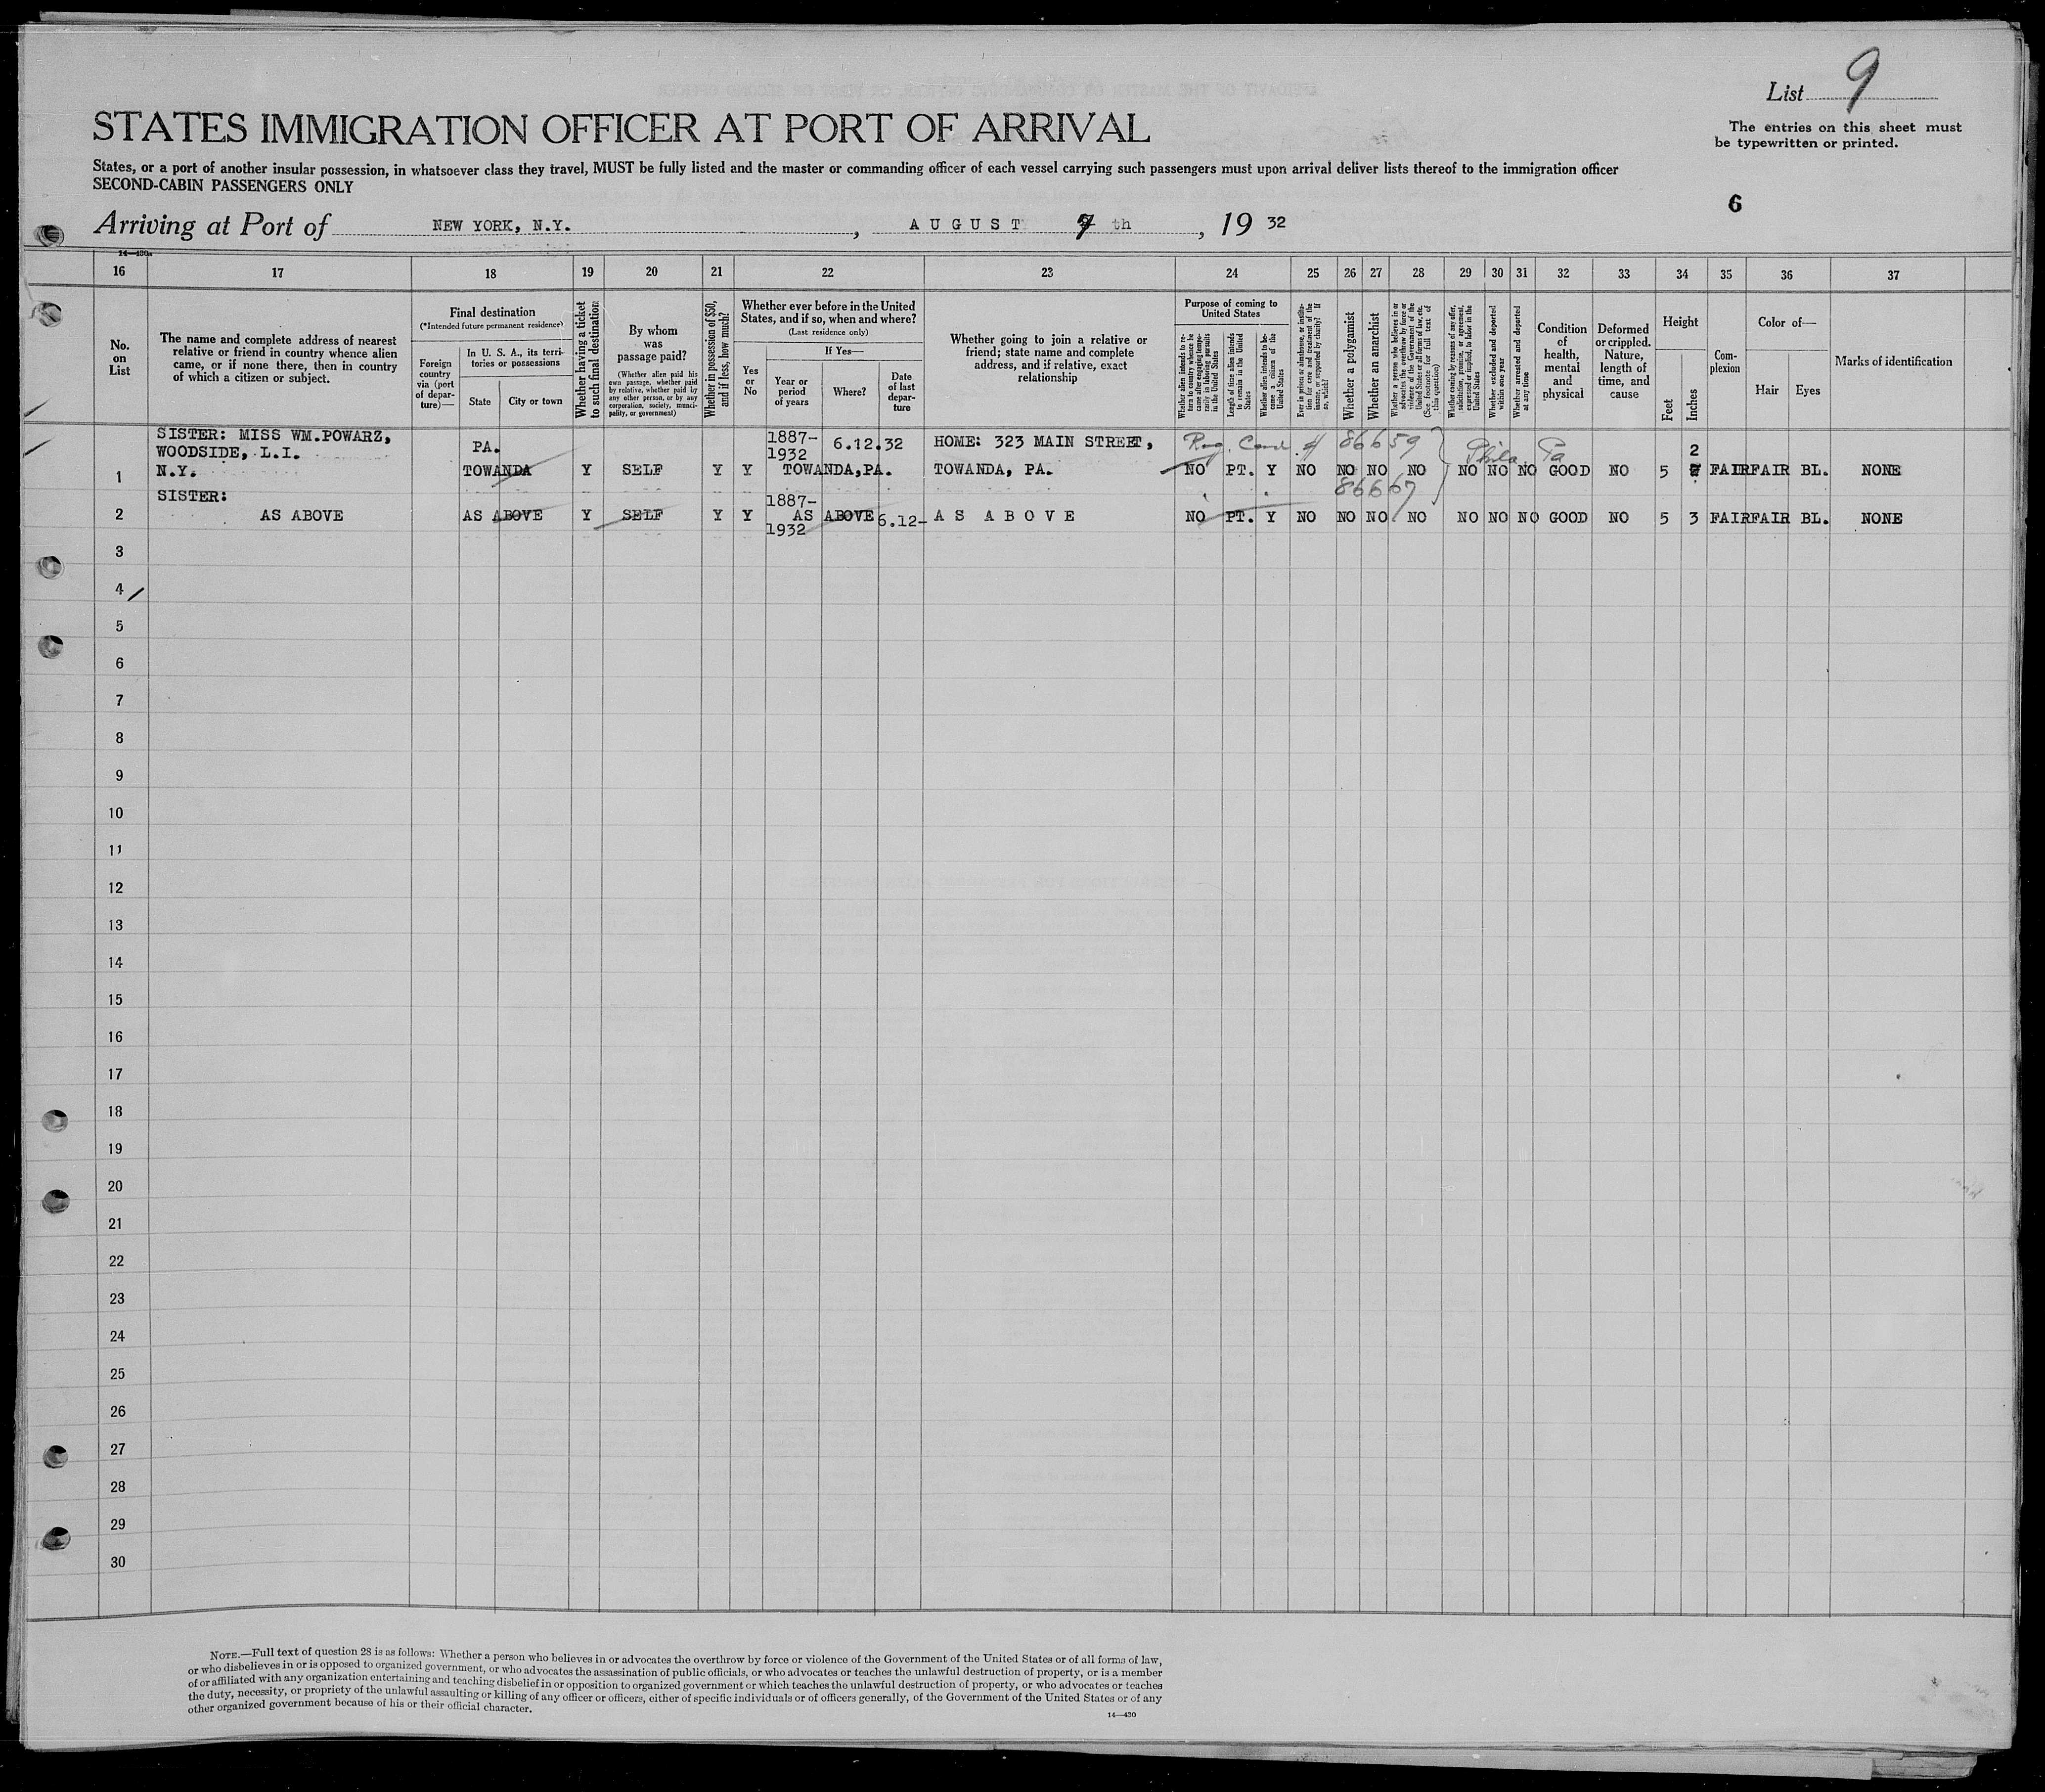 List 9
The entries on this sheet must
be typewritten or printed.
STATES IMMIGRATION OFFICER AT PORT OF ARRIVAL
States, or a port of another insular possession, in whatsoever class they travel, MUST be fully listed and the master or commanding officer of each vessel carrying such passengers must upon arrival deliver lists thereof to the immigration officer
SECOND-CABIN PASSENGERS ONLY
6
Arriving at Port of NEW YORK, N.Y. , AUGUST 7 th , 19 32
14—430a
16 17 18 19 20 21 22 23 24 25 26 27 28 29 30 31 32 33 34 35 36 37
No.
on
List
The name and complete address of nearest
relative or friend in country whence alien
came, or if none there, then in country
of which a citizen or subject.
Final destination
(*Intended future permanent residence)
Foreign
country
via (port
of depar-
ture)—
In U. S. A., its terri-
tories or possessions
State
City or town
Whether having a ticket
to such final destination
By whom
was
passage paid?
(Whether alien paid his
own passage, whether paid
by relative, whether paid by
any other person, or by any
corporation, society, munici-
pality, or government)
Whether in possession of $50,
and if less, how much?
Whether ever before in the United
States, and if so, when and where?
(Last residence only)
Yes
or
No
If Yes—
Year or
period
of years
Where?
Date
of last
depar-
ture
Whether going to join a relative or
friend; state name and complete
address, and if relative, exact
relationship
Purpose of coming to
United States
Whether alien intends to re-
turn to country whence he
came after engaging tempo-
rarily in laboring pursuits
in the United States
Length of time alien intends
to remain in the United
States
Whether alien intends to be-
come a citizen of the
United States
Ever in prison or almshouse, or institu-
tion for care and treatment of the
insane, or supported by charity? If
so, which?
Whether a polygamist
Whether an anarchist
Whether a person who believes in or
advocates the overthrow by force or
violence of the Government of the
United States or all forms of law, etc.
(See footnote for full text of
this question)
Whether coming by reasons of any offer,
solicitation, promise, or agreement,
expressed or implied, to labor in the
United States
Whether excluded and deported
within one year
Whether arrested and deported
at any time
Condition
of
health,
mental
and
physical
Deformed
or crippled.
Nature,
length of
time, and
cause
Height
Feet
Inches
Com-
plexion
Color of—
Hair
Eyes
Marks of identification
SISTER: MISS WM.POWARZ, PA. 1887- 6.12.32 HOME: 323 MAIN STREET, 86659 2
WOODSIDE, L.I. 1932 Phila. Pa
1 N.Y. TOWANDA Y SELF Y Y TOWANDA,PA. TOWANDA, PA. NO PT. Y NO NO NO NO NO NO NO GOOD NO 5 FAIR FAIR BL. NONE
SISTER: 1887- 86667
2 AS ABOVE AS ABOVE Y SELF Y Y AS ABOVE 6.12- AS ABOVE NO PT. Y NO NO NO NO NO NO NO GOOD NO 5 3 FAIR FAIR BL. NONE
1932
3
4
5
6
7
8
9
10
11
12
13
14
15
16
17
18
19
20
21
22
23
24
25
26
27
28
29
30
NOTE.—Full text of question 28 is as follows: Whether a person who believes in or advocates the overthrow by force or violence of the Government of the United States or of all forms of law,
or who disbelieves in or is opposed to organized government, or who advocates the assassination of public officials, or who advocates or teaches the unlawful destruction of property, or is a member
of or affiliated with any organization entertaining and teaching disbelief in or opposition to organized government or which teaches the unlawful destruction of property, or who advocates or teaches
the duty, necessity, or propriety of the unlawful assaulting or killing of any officer or officers, either of specific individuals or of officers generally, of the Government of the United States or of any
other organized government because of his or their official character.
14—430